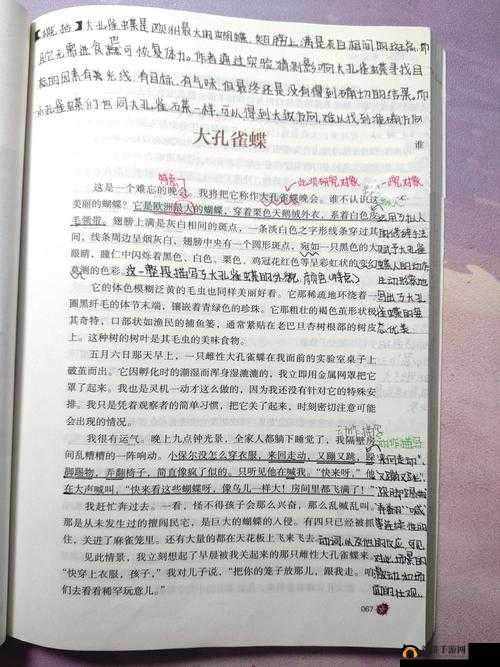 【概括】大孔雀蝶是欧洲最大的蝴蝶,翅膀上满是灰白相间的斑点,而
且它无需进食即可恢复体力。作者通过实验猜测影响大孔雀蝶寻找目
标的因素有光线,有目标,有气味,但最终还是没有得到确切的结果。而
小孔雀蝶们也同大孔雀蝶一样,可以得到大致方向,难以找到准确方向
大孔雀蝶
谁
特点
此项研究对象
这是一个难忘的晚会。我将把它称作大孔雀蝶晚会。谁不认识这
美丽的蝴蝶?它是欧洲最大的蝴蝶,穿着栗色天鹅绒外衣,系着白色皮
毛领带。翅膀上满是灰白相间的斑点,一条淡白色之字形线条穿过其
间,线条周边呈烟灰白,翅膀中央有一个圆形斑点,宛如一只黑色的大
眼睛,瞳仁中闪烁着黑色、白色、栗色、鸡冠花红色等呈彩虹状的变幻
莫测的色彩。
这一整段描写了大孔雀蝶的外貌,颜色(特点)
运用了拟人
的修辞手法
赋予大孔雀
蝶人的动作
生动形象地
写出了大孔
雀蝶的星
它的体色模糊泛黄的毛虫也同样美丽好看。它那稀疏地环绕着一
圈黑纤毛的体节末端,镶嵌着青绿色的珍珠。它那粗壮的褐色茧形状极
其奇特,口部状如渔民的捕鱼篓,通常紧贴在老巴旦杏树根部的树皮
上。这种树的树叶是其毛虫的美味食物。
五月六日那天早上,一只雌性大孔雀蝶在我面前的实验室桌子上
破茧而出。它因孵化时的潮湿而浑身湿漉漉的,我立即用金属网罩把它
罩了起来。我也是灵机一动才这么做的,因为我还没有针对它的特殊安
排。我只是凭着观察者的简单习惯,把它关了起来,时刻密切注意可能
会出现的情况。
动作描写
我很有运气。晚上九点钟光景,全家人都躺下睡觉了,我隔壁房
间乱糟糟的一阵响动。小保尔没怎么穿衣服,来回走动,又蹦又跳,跺
脚踢物,弄翻椅子,简直像疯了似的。只听见他在喊我。“快来呀,”他
在大声喊叫,“快来看这些蝴蝶呀,像鸟儿一样大!房间里都飞满了!”
动作描写
我赶忙奔过去。一看,怪不得孩子会那么兴奋,那么乱喊乱叫。
那是从未发生过的擅闯民宅,是巨大的蝴蝶的入侵。有四只已经被抓
住,关进了麻雀笼里。还有大量的都在天花板上飞来飞去
见此情景,我立刻想起了早晨被我关起来的那只雌性大孔雀蝶来。
“快穿上衣服,孩子,”我对儿子说,“把你的笼子放那儿,跟我走。咱
们去看看稀罕玩意儿。”
067